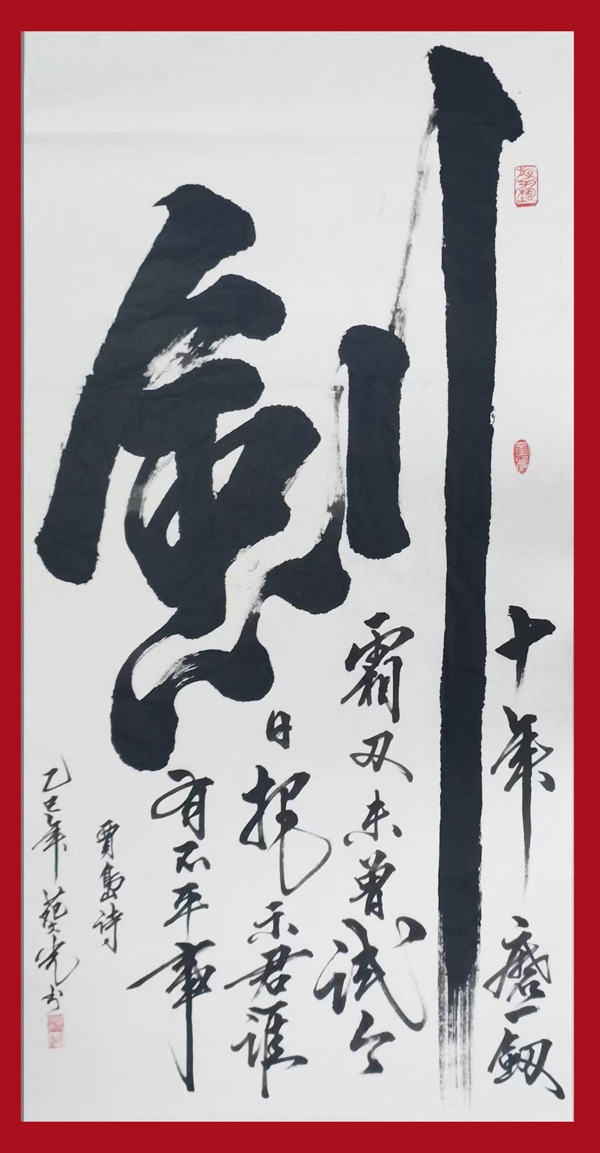 劍
十年磨一釼
霜刃未曾试今
日把示君谁
有不平事
賈島诗
乙巳年 光书